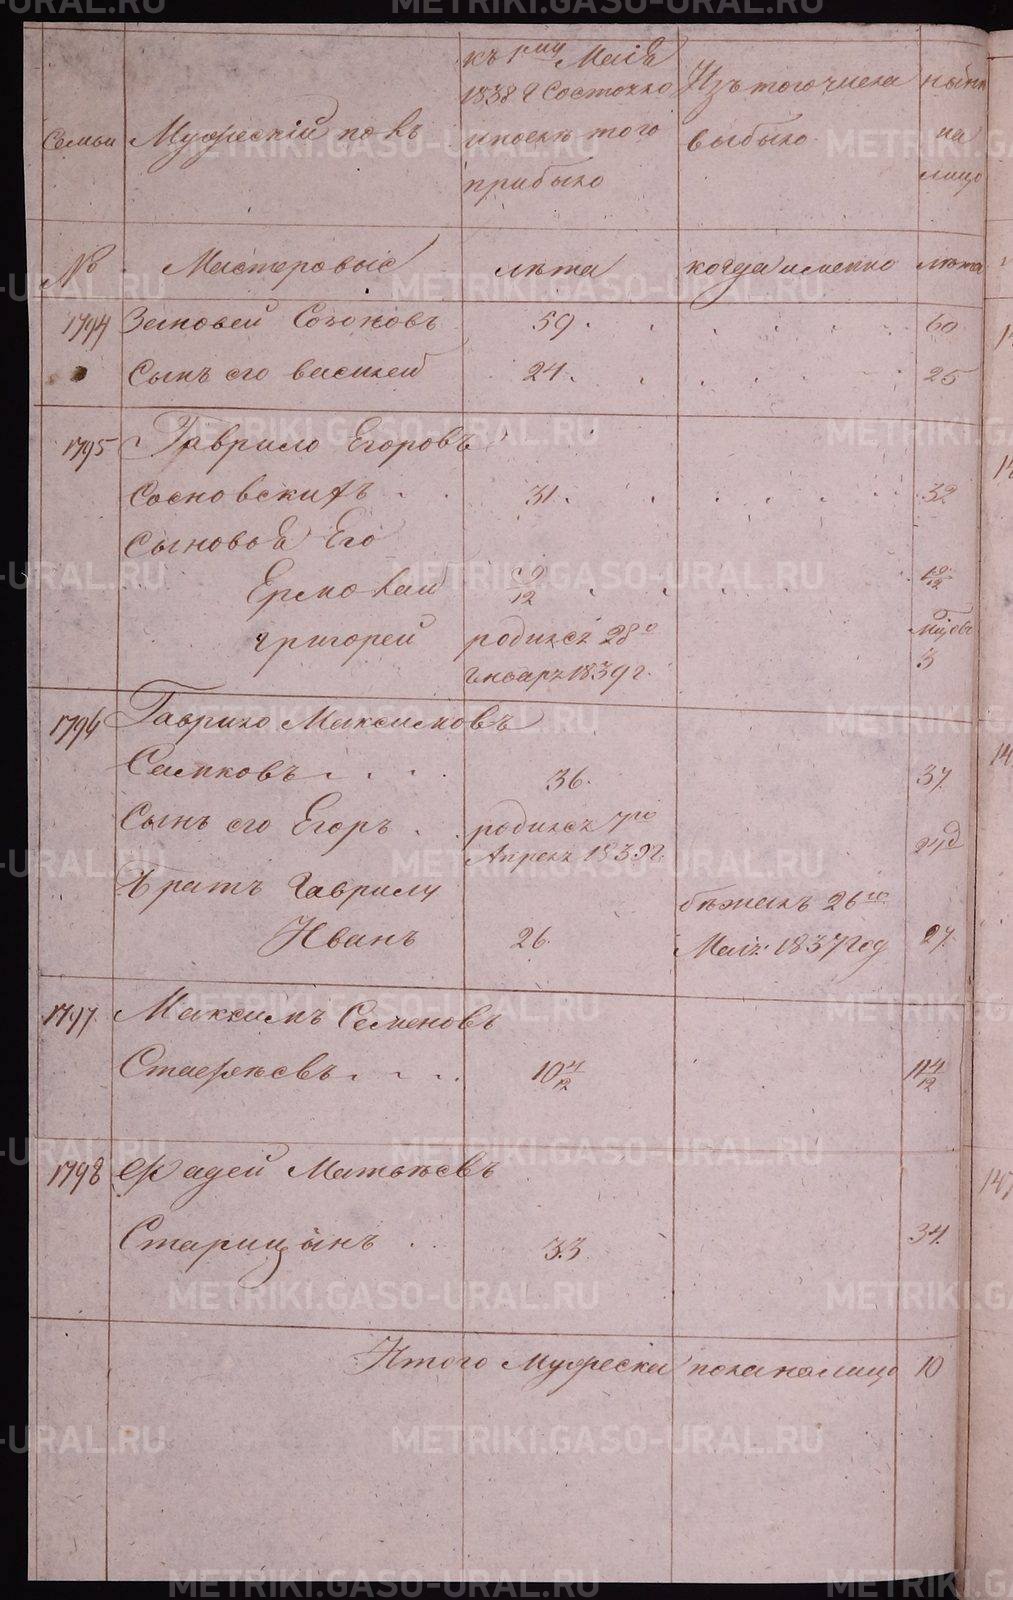 Семьи Мужескій полъ къ 1му Маія 1838 г Состояло и после того прибыло Изъ того числа выбыло ныне на лицо
№ Мастеровые лета когда именно лета
1794 Зеновей Созоновъ 59. 60
Сынъ его василей 24. 25
1795 Гаврило Егоровъ
Сосновскихъ 31. 32
Сыновья Его
Ермолай 9/12 1 9/12
григорей родился 28го Генваря 1839 г. 3
1796 Гаврило Максимовъ
Сапковъ 36. 37
Сынъ его Егоръ родился 7го Апреля 1839 г 24 д
Братъ Гаврилу
Иванъ 26. бежалъ 26го Маія 1837 год 27.
1797. Максимъ Семеновъ
10 4/12 11 4/12
1798 Фадей Матвеевъ
Старицынъ 33 34.
Итого Мужеска пола налицо 10
METRIKI.GASO-URAL.RU